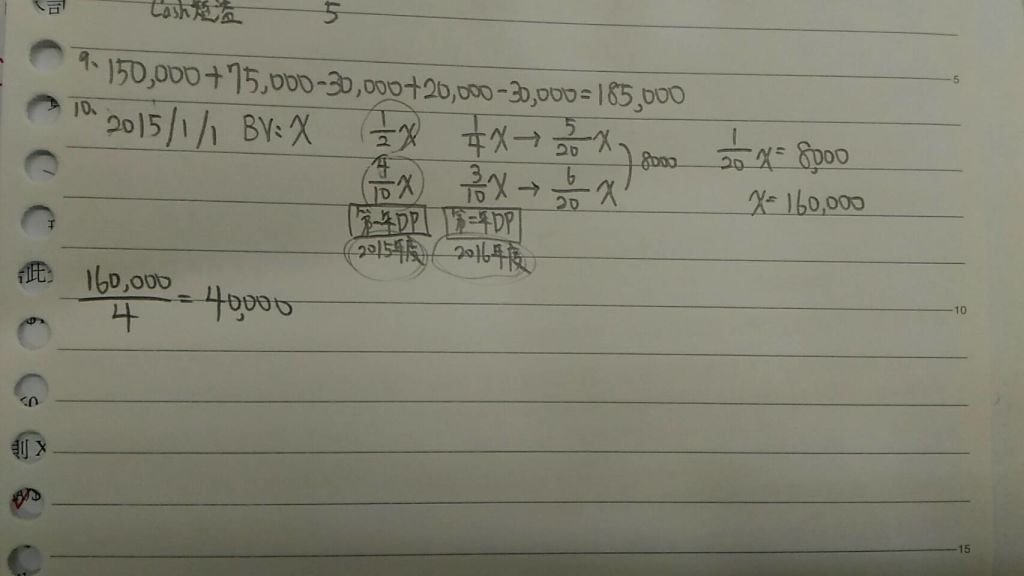 Cash短溢 5
9、150,000+75,000-30,000+20,000-30,000=185,000
10、2015/1/1 BV:X 1/2X 1/4X→5/20X
4/10X 3/10X→6/20X 8000 1/20X=8,000
X=160,000
第一年DP 第二年DP
2015年度 2016年度
160,000/4=40,000
此
X
5
10
15